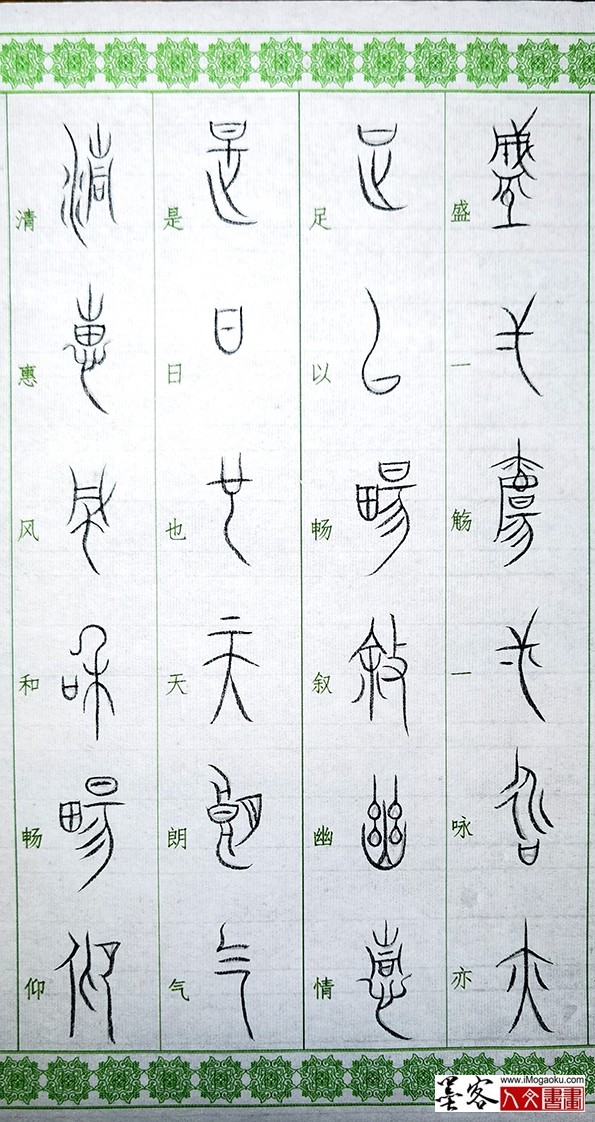 盛一觞一咏亦
足以畅叙幽情
是日也天朗气
清惠风和畅仰
墨客
www.iMogaoku.com
人文書畫